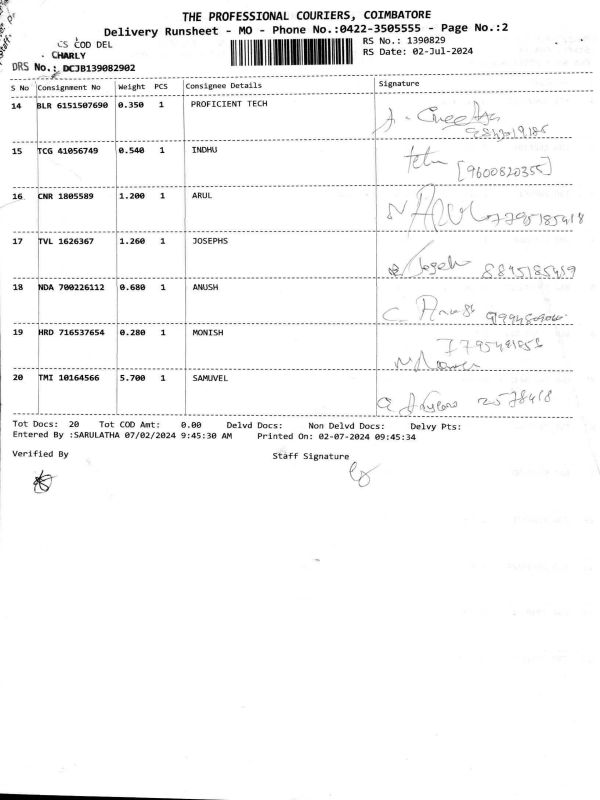 THE PROFESSIONAL COURIERS, COIMBATORE
Delivery Runsheet - MO - Phone No.:0422-3505555 - Page No.:2
CS COD DEL
CHARLY
DRS No.: DCJB139082902
RS No.: 1390829
RS Date: 02-Jul-2024
S No Consignment No Weight PCS Consignee Details Signature
14 BLR 6151507690 0.350 1 PROFICIENT TECH
15 TCG 41056749 0.540 1 INDHU
[9600820355]
16 CNR 1805589 1.200 1 ARUL
N ARUL 7795185418
17 TVL 1626367 1.260 1 JOSEPHS
Joseph 8845185459
18 NDA 700226112 0.680 1 ANUSH
C.
19 HRD 716537654 0.280 1 MONISH
20 TMI 10164566 5.700 1 SAMUVEL
2578418
Tot Docs: 20 Tot COD Amt: 0.00 Delvd Docs: Non Delvd Docs: Delvy Pts:
Entered By :SARULATHA 07/02/2024 9:45:30 AM Printed On: 02-07-2024 09:45:34
Verified By Staff Signature